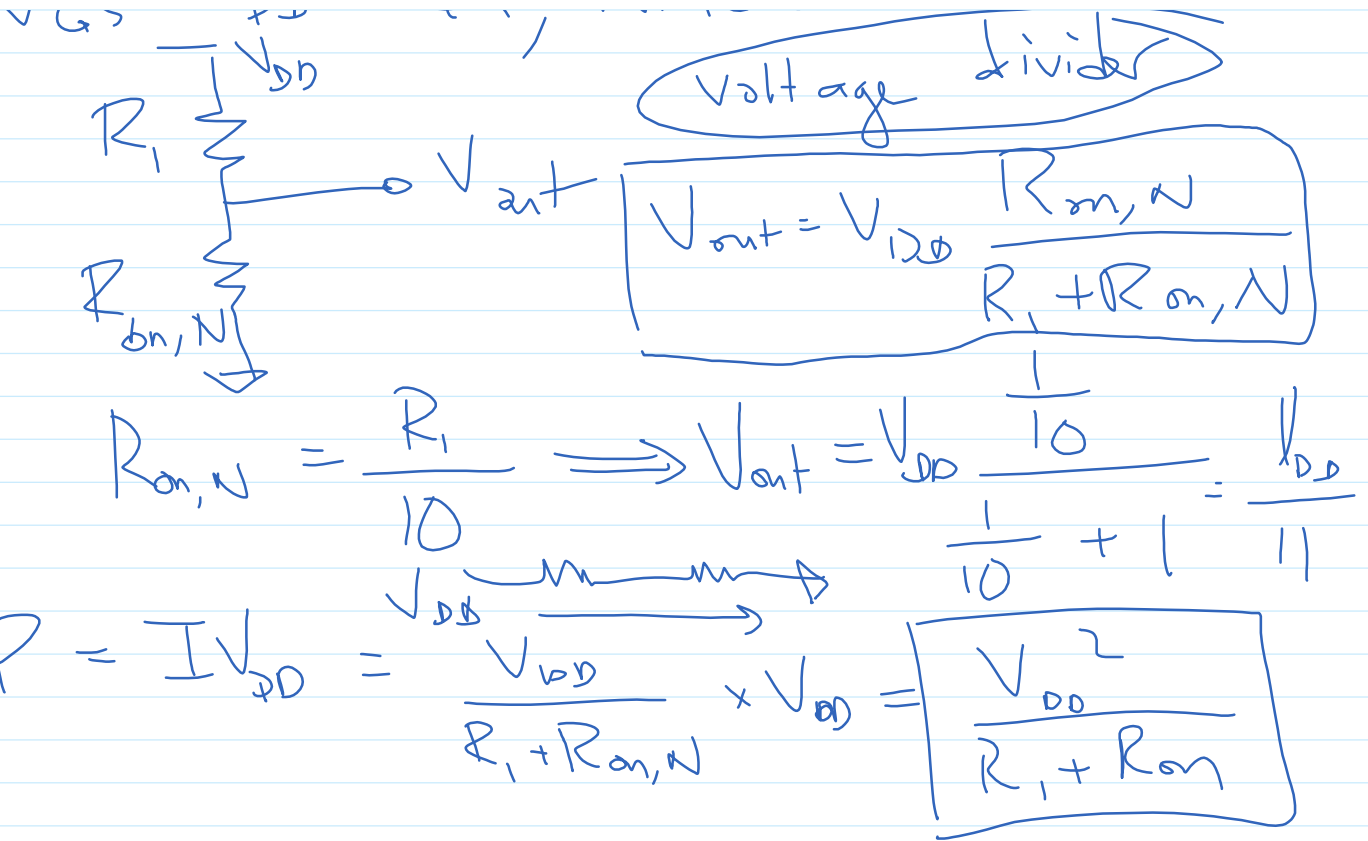 V_DD
Voltage divider
R_1
V_out
V_out = V_DD R_on,N / (R_1 + R_on,N)
R_on,N
R_on,N = R_1/10 ⟹ V_out = V_DD (1/10) / (1/10 + 1) = V_DD/11
V_DD
P = I V_DD = V_DD / (R_1 + R_on,N) × V_DD = V_DD^2 / (R_1 + R_on)